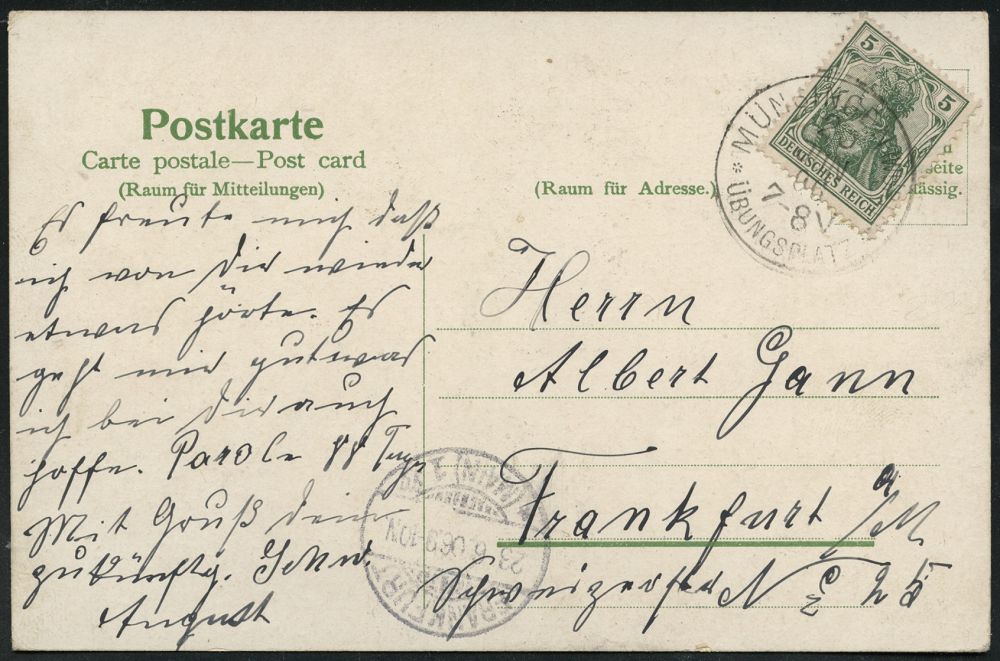 Postkarte
Carte postale—Post card
(Raum für Mitteilungen)
Es freute mich daß
ich von dir wieder
etwas hörte. Es
geht mir gut was
ich bei dir auch
hoffe. Parole 88 Tage
Mit Gruß dein
zukünftg. Schw.
August
(Raum für Adresse.)
Herrn
Albert Gann
Frankfurt a/M
Schweizerstr N° 25
5
5
DEUTSCHES REICH
seite
lässig.
* ÜBUNGSPLATZ
7-8V
FRANKFURT (MAIN) 1
23.6.06.9-10N